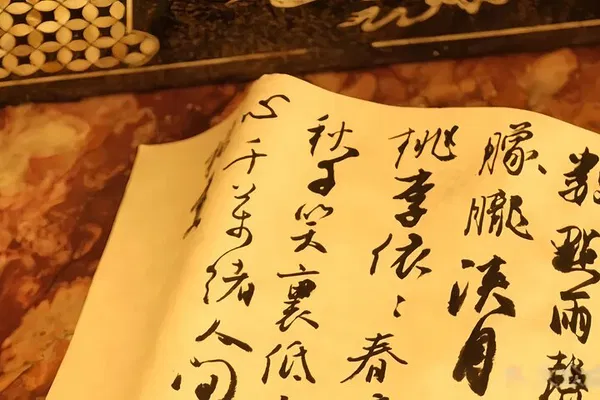 數點雨聲
朦朧淡月
桃李依〻春
秋千笑裏低
心千萬緒人間